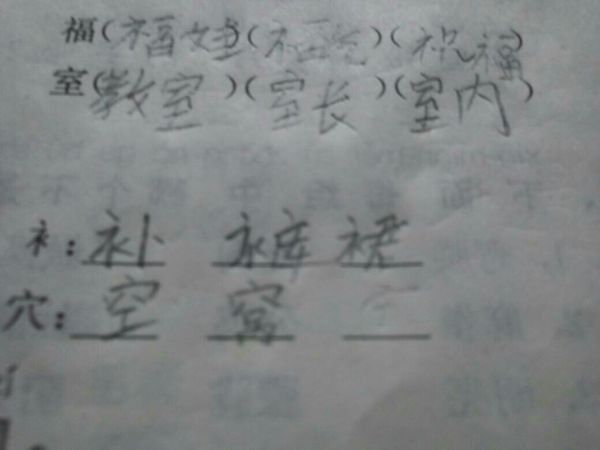 福(福娃)(福)(祝福)
室(教室)(室长)(室内)
衤:补 裤 裙
穴:空 窝